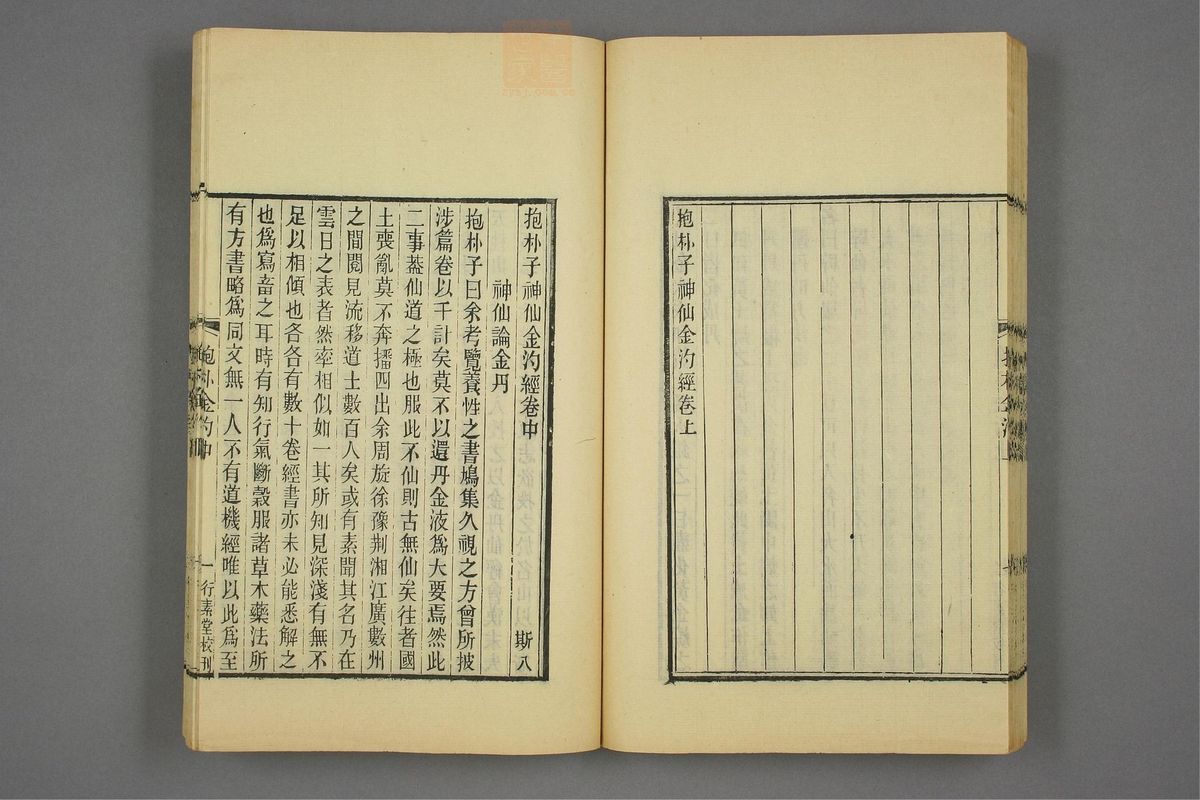 抱朴子神仙金汋經卷上
抱朴子神仙金汋經卷中 斯八
神仙論金丹
抱朴子曰余考覽養性之書鳩集久視之方曾所披
涉篇卷以千計矣莫不以還丹金液爲大要焉然此
二事蓋仙道之極也服此不仙則古無仙矣往者國
土喪亂莫不奔播四出余周旋徐豫荆湘江廣數州
之間閱見流移道士數百人矣或有素聞其名乃在
雲日之表者然率相似如一其所知見深淺有無不
足以相傾也各各有數十卷經書亦未必能悉解之
也爲寫畜之耳時有知行氣斷穀服諸草木藥法所
有方書略爲同文無一人不有道機經唯以此爲至
抱朴金汋中
一
行素堂校刊